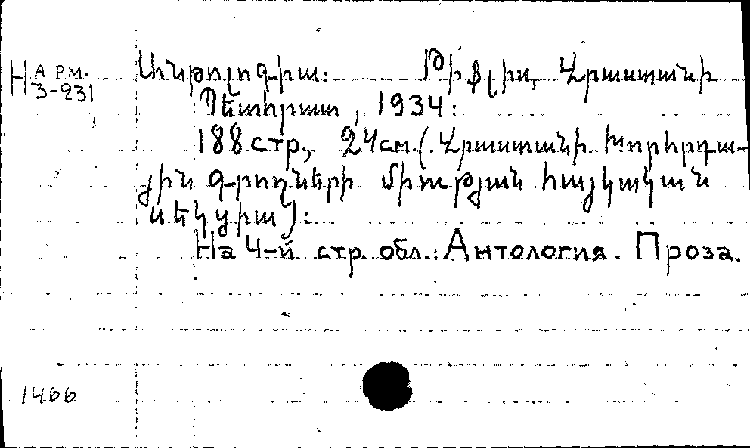 Н АРМ.
3-231
Անթոլոգիա: Թիֆլիս, Վրաստանի
Պետհրատ, 1934:
188 стр., 24 см. (Վրաստանի Խորհրդա-
յին գրողների միության հայկական
սեկցիա):
На 4-й стр. обл.: Антология. Проза.
1466